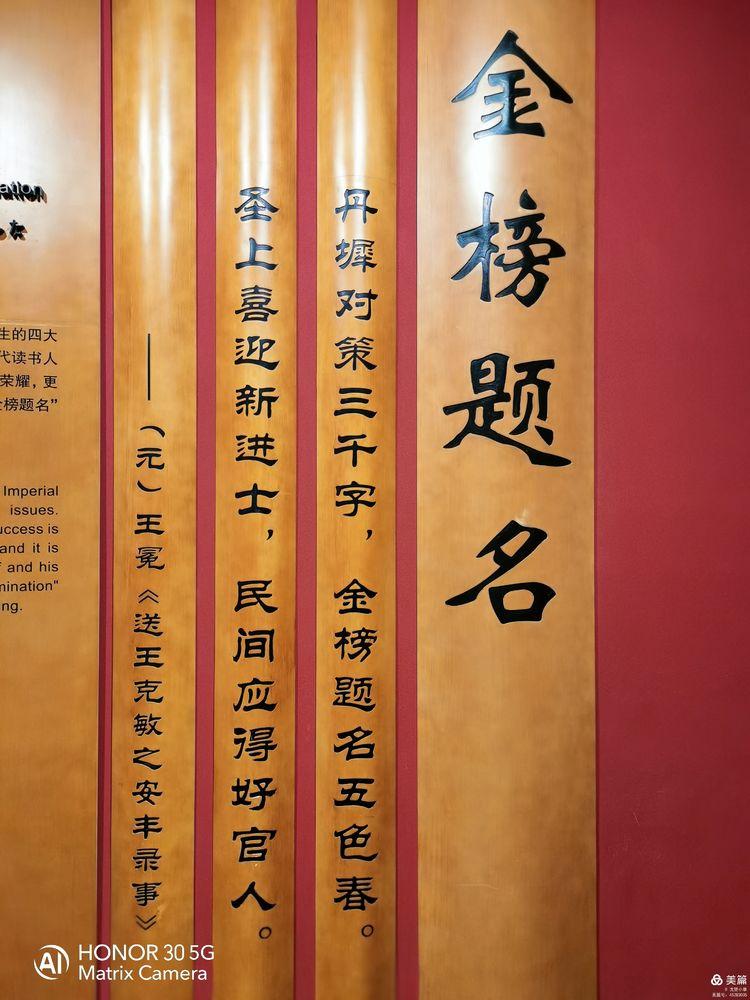 金榜题名
丹墀对策三千字，金榜题名五色春。
圣上喜迎新进士，民间应得好官人。
——（元）王冕《送王克敏之安丰录事》
ation
生的四大
代读书人
荣耀，更
金榜题名”
Imperial
issues.
uccess is
and it is
and his
mination"
ng.
HONOR 30 5G
Matrix Camera
AI
美篇